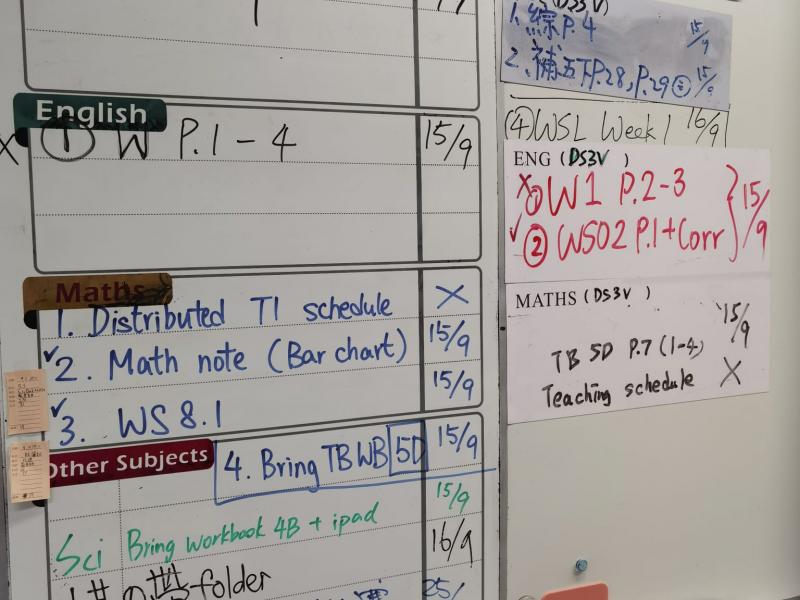 English
① W P.1-4 15/9
Maths
1. Distributed T1 schedule ×
✓2. Math note (Bar chart) 15/9
✓3. WS 8.1 15/9
Other Subjects
4. Bring TB WB 5D 15/9
Sci Bring workbook 4B + ipad 15/9
16/9
folder
25/
1. 綜P.4 15/9
2. 補五下P.28, P.29 15/9
(4) WSL Week 1 16/9
ENG (DS3V)
×① W1 P.2-3
✓② WS02 P.1+Corr } 15/9
MATHS (DS3V)
TB 5D P.7 (1-4) 15/9
Teaching schedule ×